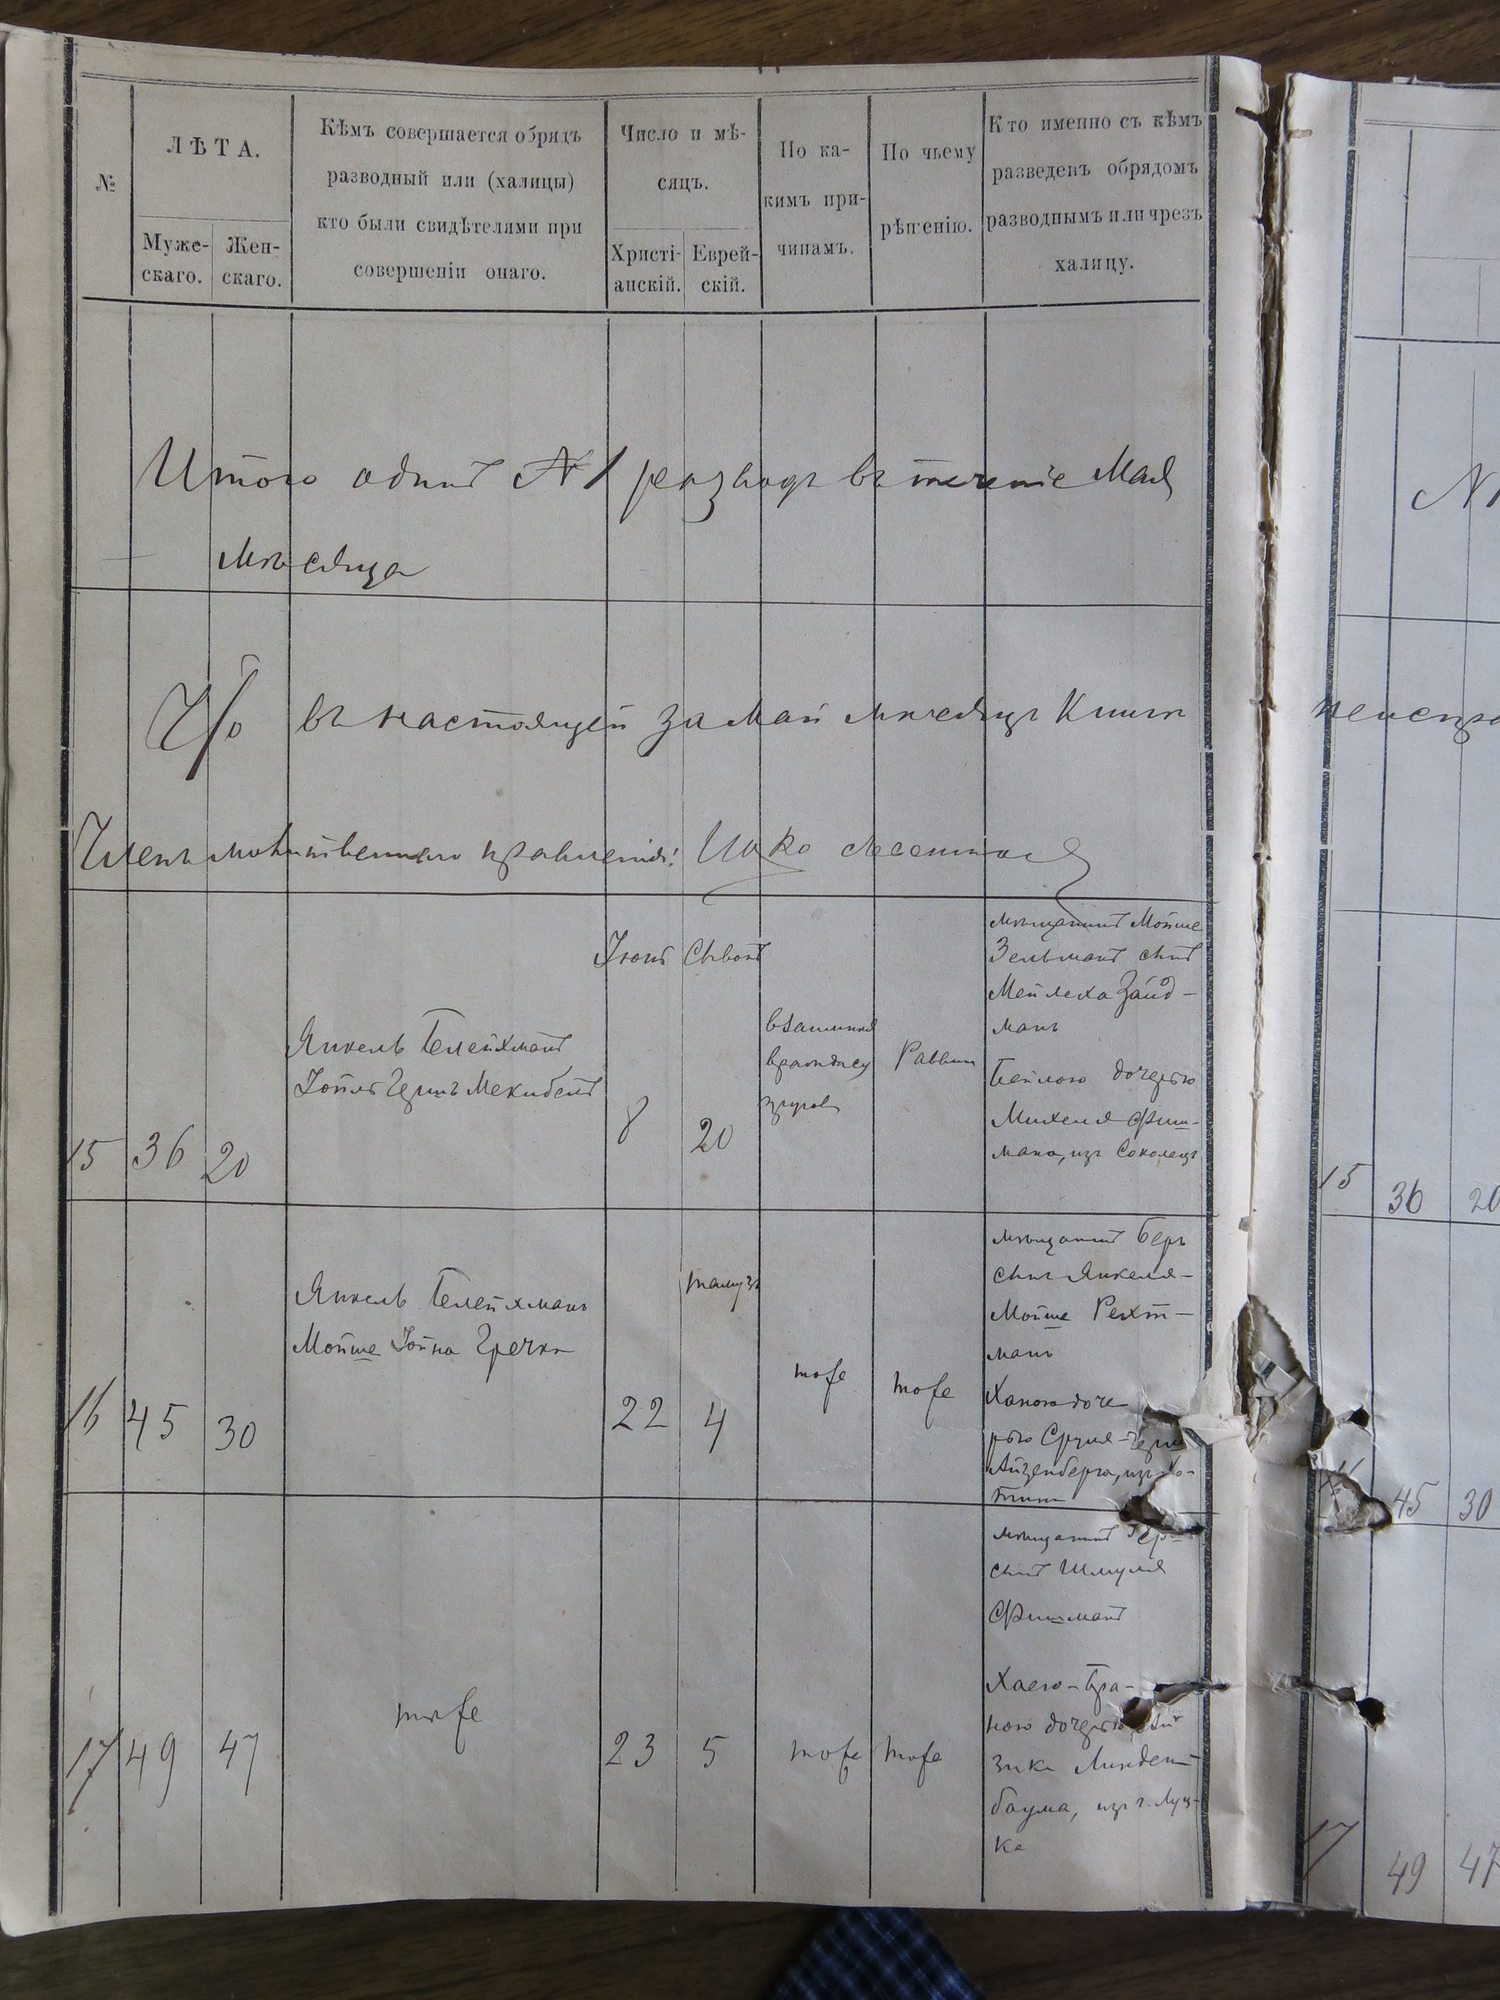 №
ЛѢТА.
Муже-
скаго.
Жен-
скаго.
Кѣмъ совершается обрядъ
разводный или (халицы)
кто были свидѣтелями при
совершеніи онаго.
Число и мѣ-
сяцъ.
Христі-
анскій.
Еврей-
скій.
По ка-
кимъ при-
чинамъ.
По чьему
рѣшенію.
Кто именно съ кѣмъ
разведенъ обрядомъ
разводнымъ или чрезъ
халицу.
Итого одинъ №1 разводъ въ теченіе Мая
мѣсяца
Что въ настоящей за май мѣсяцъ Книги
Членъ молитвенного правленія:
15
36
20
Янкель Гелейхманъ
Іойль Герш Мекибель
Іюнь
8
Сивонъ
20
взаимная
вражда
Раввин
мѣщанинъ Мойше
Зельманъ сынъ
Мейлеха Зайд-
манъ
Бейлою дочерью
Михеля Фиш-
мана, изъ Соколецъ
16
45
30
Янкель Гелейхманъ
Мойше Іойна Гречка
22
тамузъ
4
тоже
тоже
мѣщанинъ Беръ
сынъ Янкеля-
Мойше Рехт-
манъ
Ханою доче-
рью Сруля-
Айзенберга, изъ Хо-
тина
17
49
47
тоже
23
5
тоже
тоже
мѣщанинъ Герш
сынъ Шмуля
Фишманъ
Хаею-Бра-
ною дочерью Ай
зика Линден-
баума, изъ г. Луц-
ка
15
36
20
45
30
17
49
47